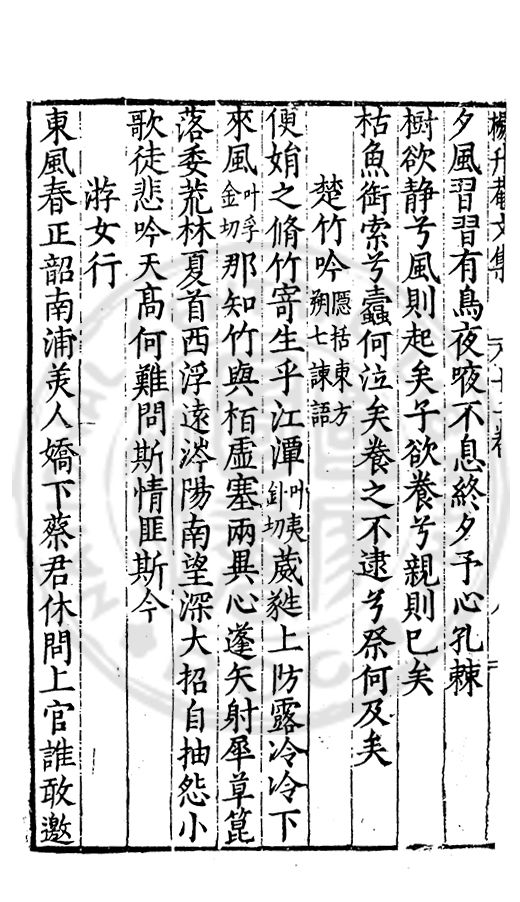 楊升菴文集
夕風習習有鳥夜唳不息終夕予心孔棘
樹欲静兮風則起矣子欲養兮親則已矣
枯魚銜索兮蠹何泣矣養之不逮兮祭何及矣
楚竹吟隱括東方朔七諫語
便娟之脩竹寄生乎江潭叶夷針切葳蕤上防露冷冷下
來風叶孚金切那知竹與栢虛塞兩異心蓬矢射犀草篦
落委荒林夏首西浮遠涔陽南望深大招自抽怨小
歌徒悲吟天髙何難問斯情匪斯今
游女行
東風春正韶南浦美人嬌下蔡君休問上官誰敢邀